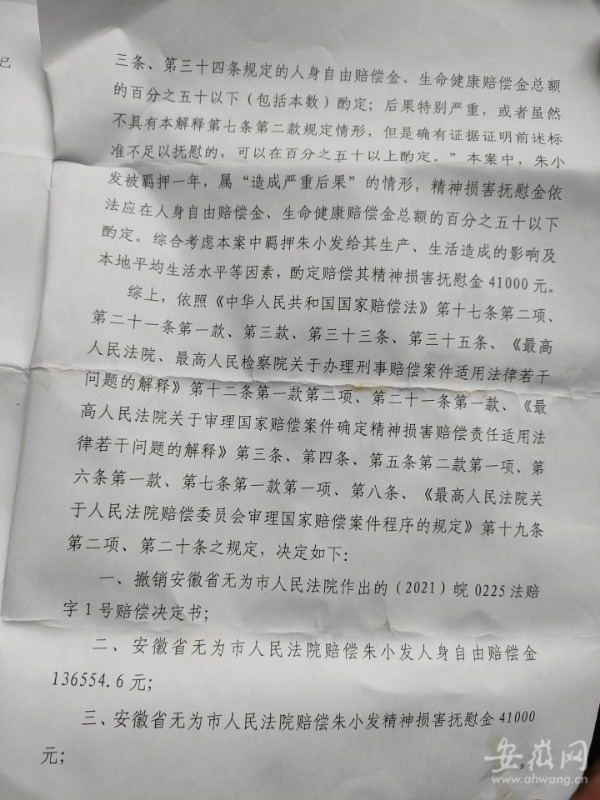 已
三条、第三十四条规定的人身自由赔偿金、生命健康赔偿金总额
的百分之五十以下（包括本数）酌定；后果特别严重，或者虽然
不具有本解释第七条第二款规定情形，但是确有证据证明前述标
准不足以抚慰的，可以在百分之五十以上酌定。”本案中，朱小
发被羁押一年，属“造成严重后果”的情形，精神损害抚慰金依
法应在人身自由赔偿金、生命健康赔偿金总额的百分之五十以下
酌定。综合考虑本案中羁押朱小发给其生产、生活造成的影响及
本地平均生活水平等因素，酌定赔偿其精神损害抚慰金41000元。
综上，依照《中华人民共和国国家赔偿法》第十七条第二项、
第二十一条第一款、第三款、第三十三条、第三十五条、《最高
人民法院、最高人民检察院关于办理刑事赔偿案件适用法律若干
问题的解释》第十二条第一款第二项、第二十一条第一款、《最
高人民法院关于审理国家赔偿案件确定精神损害赔偿责任适用法
律若干问题的解释》第三条、第四条、第五条第二款第一项、第
六条第一款、第七条第一款第一项、第八条、《最高人民法院关
于人民法院赔偿委员会审理国家赔偿案件程序的规定》第十九条
第二项、第二十条之规定，决定如下：
一、撤销安徽省无为市人民法院作出的（2021）皖0225法赔
字1号赔偿决定书；
二、安徽省无为市人民法院赔偿朱小发人身自由赔偿金
136554.6元；
三、安徽省无为市人民法院赔偿朱小发精神损害抚慰金41000
元；
9
安徽网
www.ahwang.cn